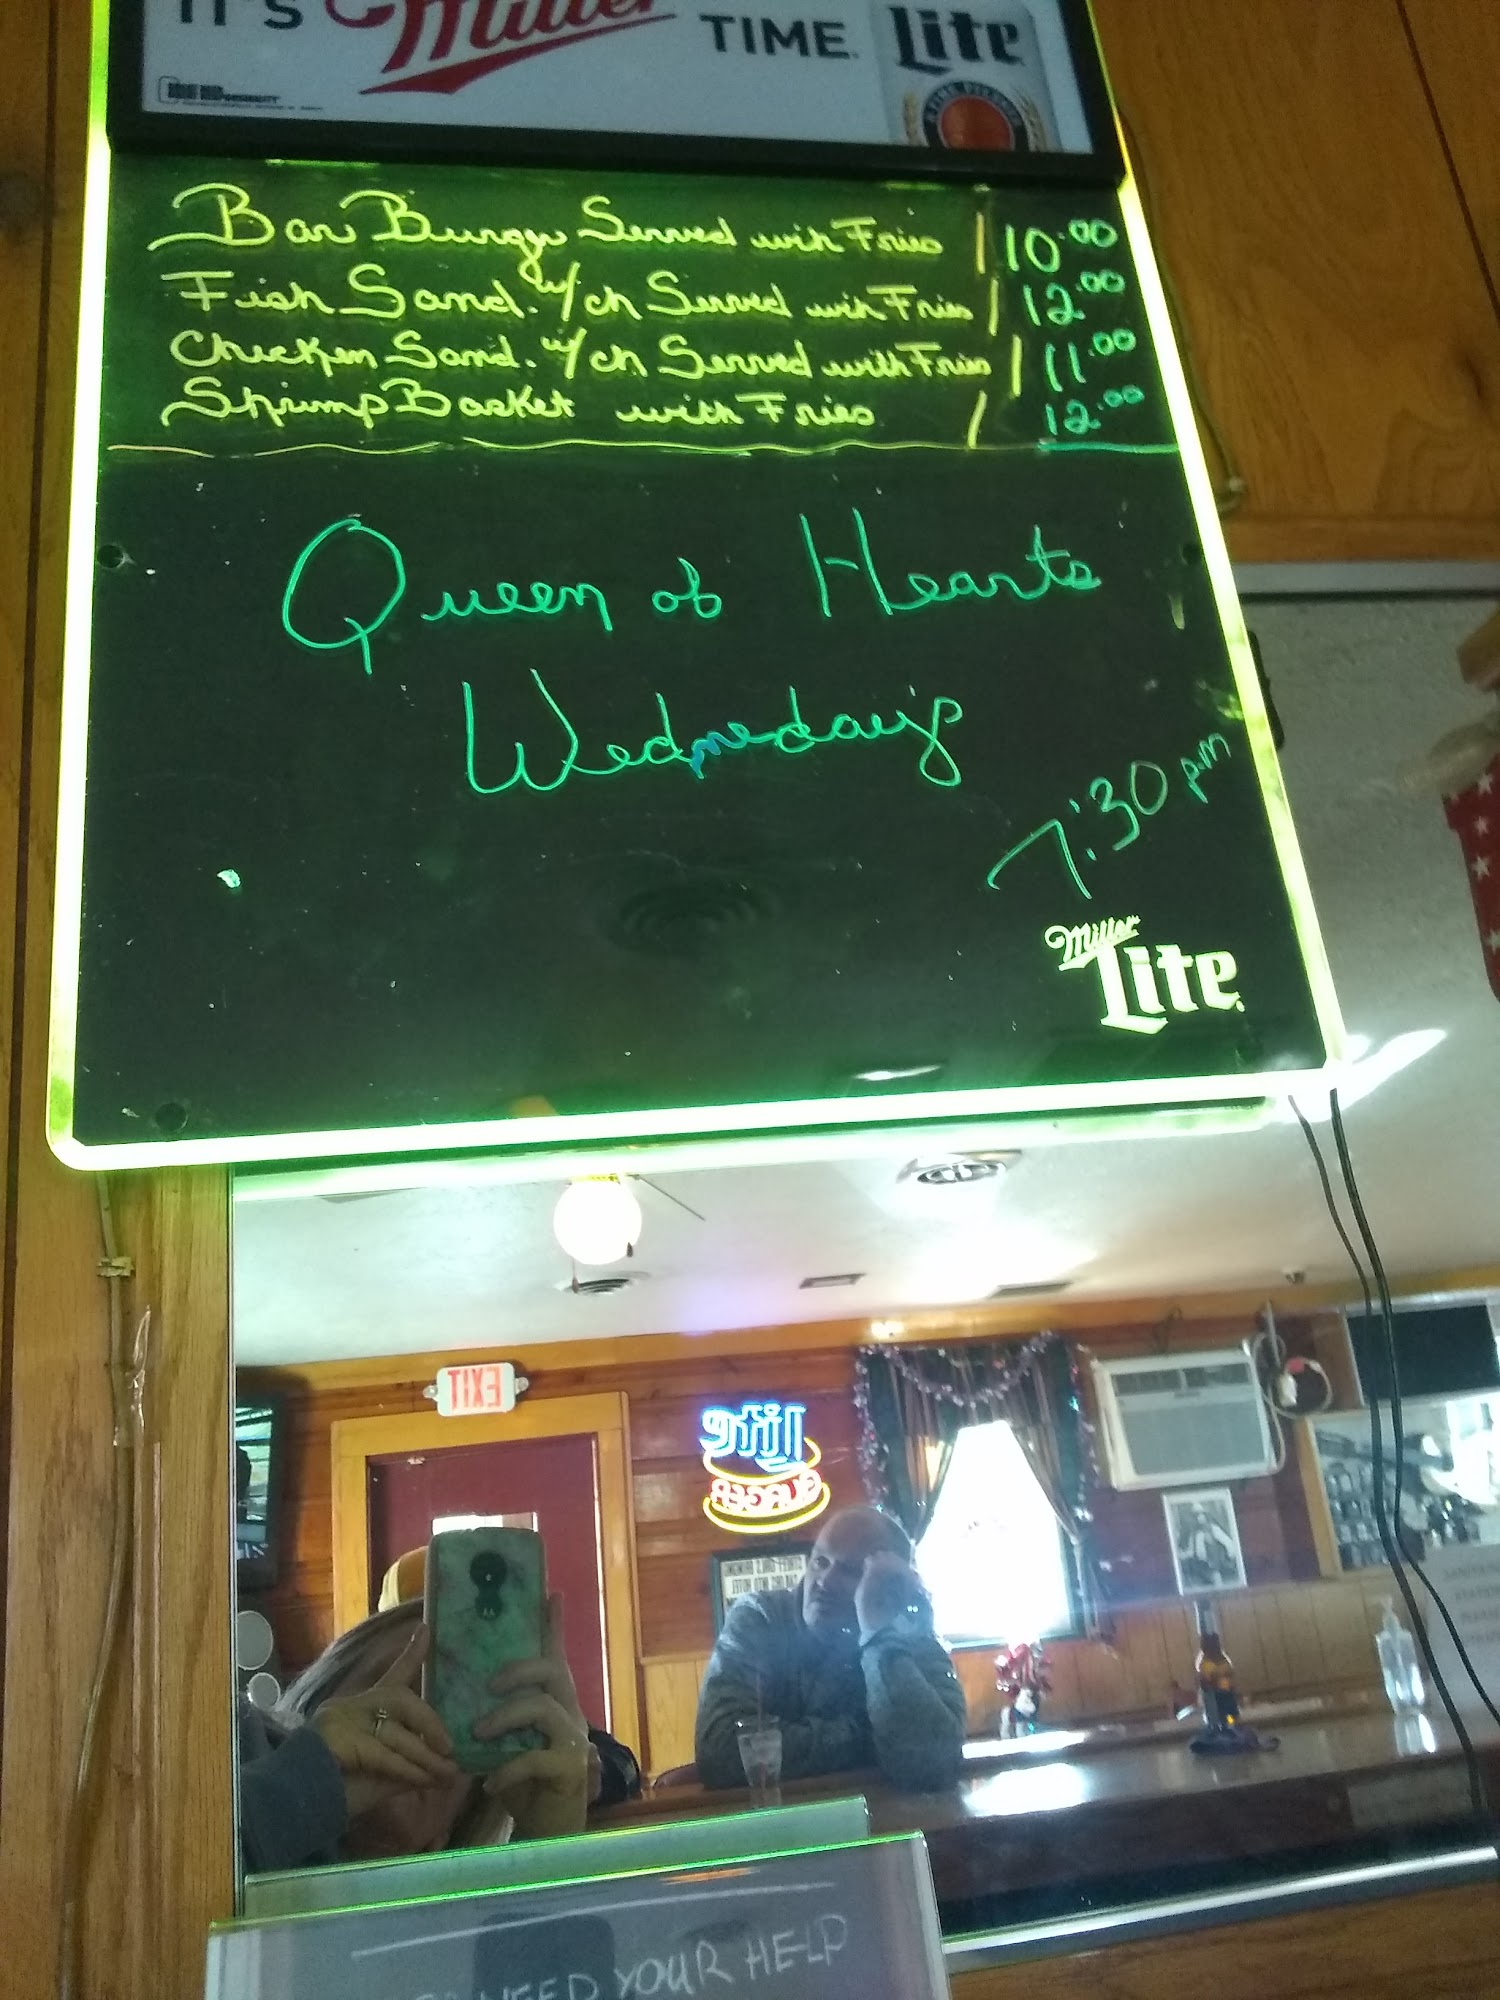 IT'S Miller TIME. Lite
A FINE PILSNER
Bar Burger Served with Fries / 10.00
Fish Sand. w/ch Served with Fries / 12.00
Chicken Sand. w/ch Served with Fries / 11.00
Shrimp Basket with Fries / 12.00
Queen of Hearts
Wednesday's
7:30 p.m
Miller
Lite
EXIT
Lite
BURGER
NEED YOUR HELP